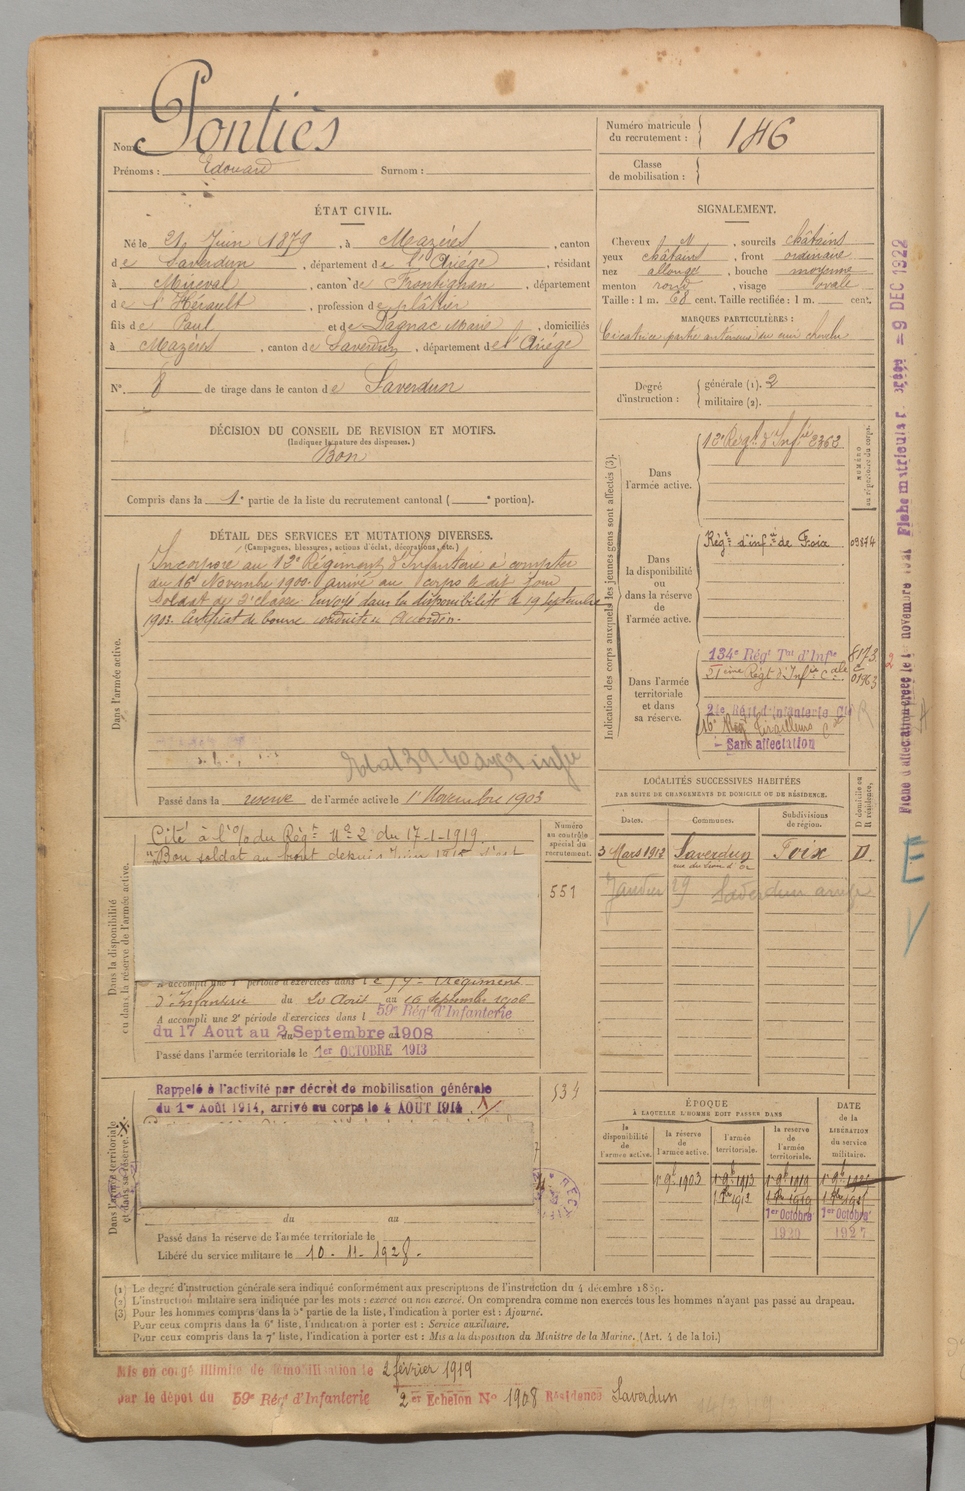 Nom : Pontiès
Prénoms : Edouard Surnom :
Numéro matricule du recrutement : 146
Classe de mobilisation :
ÉTAT CIVIL.
Né le 21 Juin 1879, à Mazéres, canton
de Saverdun, département de l'Ariège, résidant
à Mireval, canton de Frontignan, département
de l'Hérault, profession de plâtrier
fils de Paul et de Dagnac Marie, domiciliés
à Mazères, canton de Saverdun, département de l'Ariège
N° 8 de tirage dans le canton de Saverdun
SIGNALEMENT.
Cheveux N, sourcils châtains
yeux châtains, front ordinaire
nez allongé, bouche moyenne
menton rond, visage ovale
Taille : 1 m. 68 cent. Taille rectifiée : 1 m. cent.
MARQUES PARTICULIÈRES :
Cicatrice partie antérieure du cuir chevelu
Degré d'instruction : générale (1). 2
militaire (2).
DÉCISION DU CONSEIL DE REVISION ET MOTIFS.
(Indiquer la nature des dispenses.)
Bon
Compris dans la 1e partie de la liste du recrutement cantonal ( e portion).
DÉTAIL DES SERVICES ET MUTATIONS DIVERSES.
(Campagnes, blessures, actions d'éclat, décorations, etc.)
Dans l'armée active.
Incorporé au 12e Régiment d'Infanterie à compter
du 16 Novembre 1900. arrivé au corps le dit jour
Soldat de 2e classe. Envoyé dans la disponibilité le 19 Septembre
1903. Certificat de bonne conduite accordé.
Passé dans la réserve de l'armée active le 1er Novembre 1903
Indication des corps auxquels les jeunes gens sont affectés (3).
NUMÉRO au répertoire du corps.
Dans l'armée active.
12e Régt d'Infie 8363
Dans la disponibilité ou dans la réserve de l'armée active.
Régt d'infie de Foix 09874
Dans l'armée territoriale et dans sa réserve.
134e Régt Tal d'Infie 8173
21ème Régt d'Infie Cale 01963
21e Régt d'Infanterie Cle
16e Régt Tirailleurs
Sans affectation
LOCALITÉS SUCCESSIVES HABITÉES
PAR SUITE DE CHANGEMENTS DE DOMICILE OU DE RÉSIDENCE.
Dates. Communes. Subdivisions de région. D domicile ou R résidence.
3 Mars 1912 Saverdun Foix D.
Janvier 29 Saverdun
Dans la disponibilité ou dans la réserve de l'armée active.
Numéro au contrôle spécial du recrutement.
551
Cité à l'O/ du Régt N° 2 du 17-1-1919
"Bon soldat au front depuis Juin 1915
A accompli une 1e période d'exercices dans le 59e Régiment
d'Infanterie du 20 Août au 16 septembre 1906
A accompli une 2e période d'exercices dans l 59e Régt d'Infanterie
du 17 Aout au 2 Septembre 1908
Passé dans l'armée territoriale le 1er OCTOBRE 1913
Dans l'armée territoriale et dans sa réserve.
534
Rappelé à l'activité par décret de mobilisation générale
du 1er Août 1914, arrivé au corps le 4 AOUT 1914
du au
Passé dans la réserve de l'armée territoriale le
Libéré du service militaire le 10-11-1928.
ÉPOQUE
À LAQUELLE L'HOMME DOIT PASSER DANS
la disponibilité de l'armée active. la réserve de l'armée active. l'armée territoriale. la réserve de l'armée territoriale.
DATE de la LIBÉRATION du service militaire.
1er 9bre 1903 1er 9bre 1913 1er 9bre 1919 1er 9bre 1925
1er Octobre 1er Octobre
1920 1927
(1) Le degré d'instruction générale sera indiqué conformément aux prescriptions de l'instruction du 4 décembre 1889.
(2) L'instruction militaire sera indiquée par les mots : exercé ou non exercé. On comprendra comme non exercés tous les hommes n'ayant pas passé au drapeau.
(3) Pour les hommes compris dans la 5e partie de la liste, l'indication à porter est : Ajourné.
Pour ceux compris dans la 6e liste, l'indication à porter est : Service auxiliaire.
Pour ceux compris dans la 7e liste, l'indication à porter est : Mis à la disposition du Ministre de la Marine. (Art. 4 de la loi.)
Mis en congé illimité de démobilisation le 2 février 1919
par le dépôt du 59e Régt d'Infanterie 2er Echelon N° 1908 Résidence Saverdun